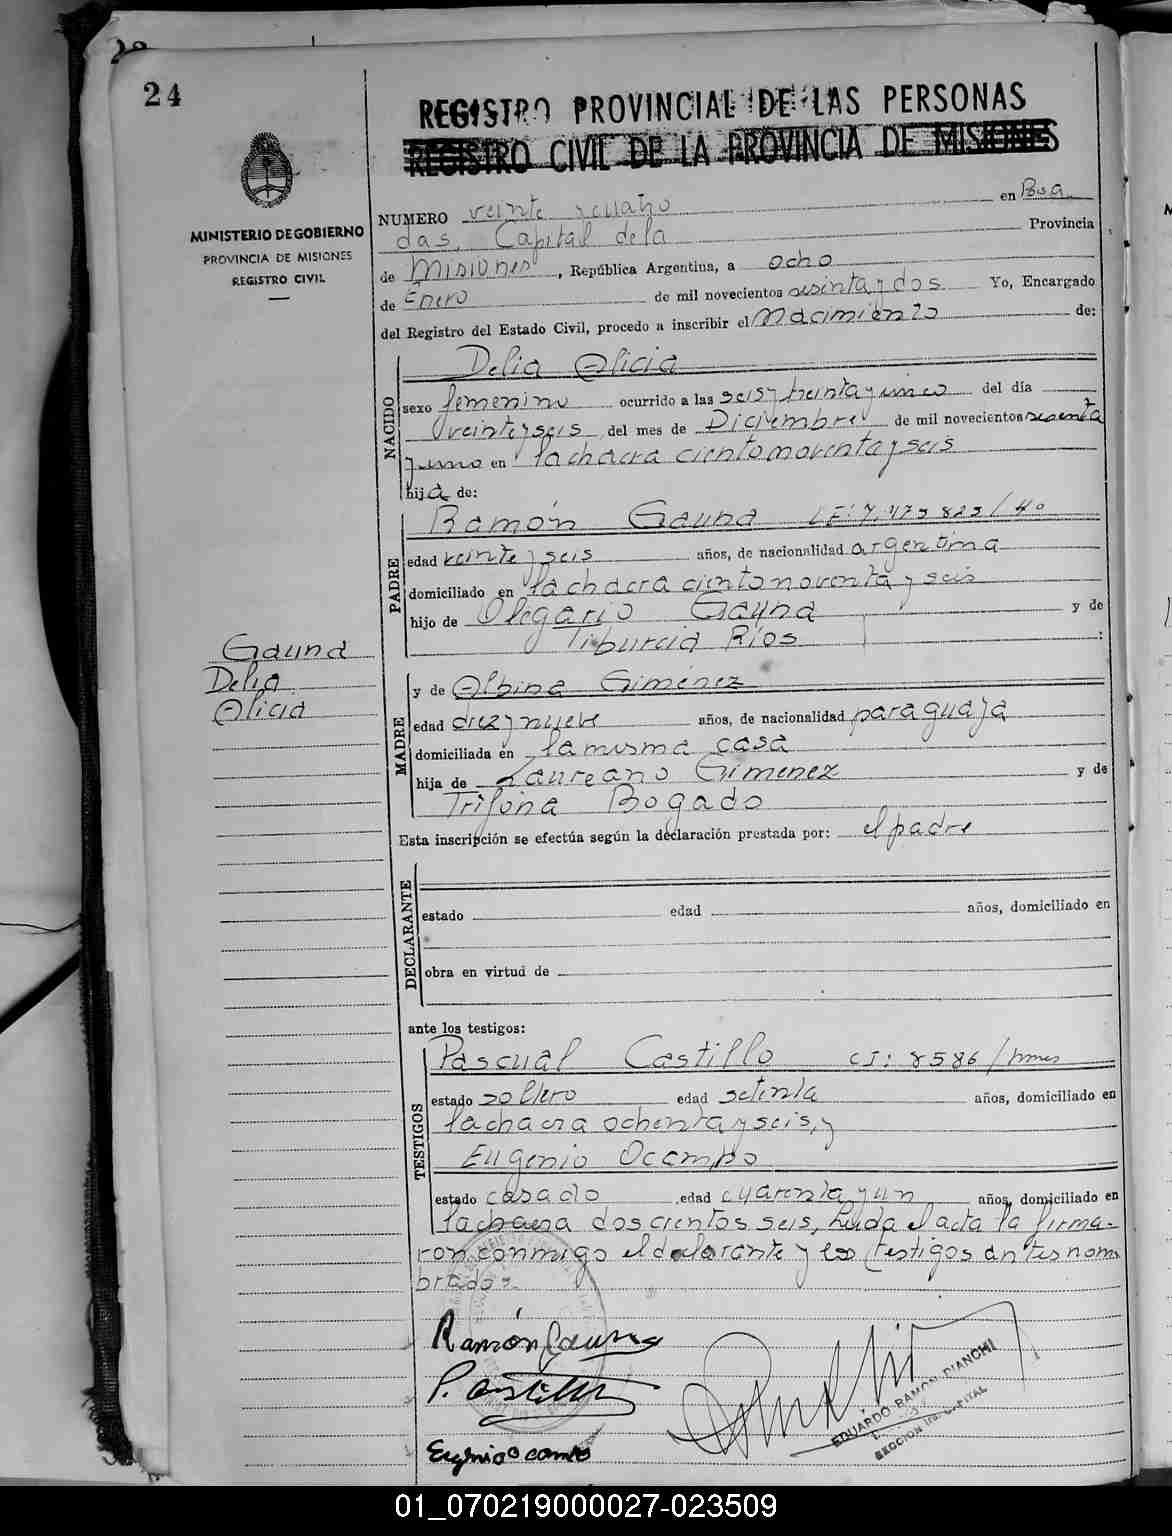 24
REGISTRO PROVINCIAL DE LAS PERSONAS
REGISTRO CIVIL DE LA PROVINCIA DE MISIONES
MINISTERIO DE GOBIERNO
PROVINCIA DE MISIONES
REGISTRO CIVIL
NUMERO veinte y cuatro en Posa
das, Capital de la Provincia
de Misiones, República Argentina, a ocho
de Enero de mil novecientos sesenta y dos Yo, Encargado
del Registro del Estado Civil, procedo a inscribir el Nacimiento de:
NACIDO
Delia Alicia
sexo femenino ocurrido a las seis y treinta y cinco del día
veinte y seis del mes de Diciembre de mil novecientos sesenta
y uno en la chacra ciento noventa y seis
hija de:
PADRE
Ramón Gauna LE:
edad veinte y seis años, de nacionalidad argentina
domiciliado en la chacra ciento noventa y seis
hijo de Olegario Gauna y de
Tiburcia Ríos :
Gauna
Delia
Alicia
MADRE
y de Albina Giménez
edad diez y nueve años, de nacionalidad paraguaya
domiciliada en la misma casa
hija de Laureano Gimenez y de
Trifona Bogado
Esta inscripción se efectúa según la declaración prestada por: el padre
DECLARANTE
estado edad años, domiciliado en
obra en virtud de
ante los testigos:
TESTIGOS
Pascual Castillo CI: 8586/
estado soltero edad setenta años, domiciliado en
la chacra ochenta y seis, y
Eugenio Ocampo
estado casado edad cuarenta y un años, domiciliado en
la chacra doscientos seis, Leida el acta la firma-
ron conmigo el declarante y los testigos antes nom
brados.
Ramón Gauna
P. Castillo
Eugenio Ocampo
EDUARDO RAMON D'IANCHI
SECCION CAPITAL
01_070219000027-023509